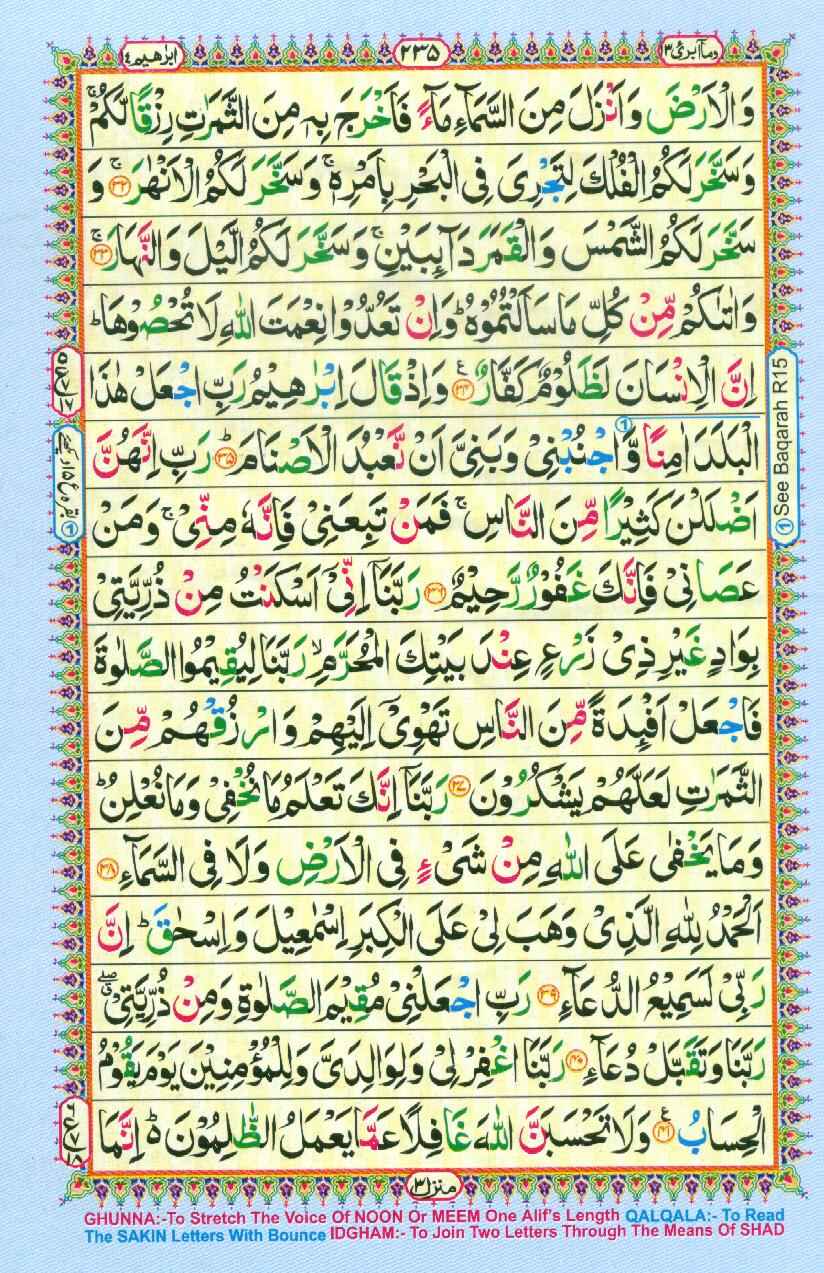 ابرٰهيم ١٤
٢٣٥
ومآ ابرئ ١٣
وَالْاَرْضَ وَاَنْزَلَ مِنَ السَّمَآءِ مَآءً فَاَخْرَجَ بِهٖ مِنَ الثَّمَرٰتِ رِزْقًا لَّكُمْ ۚ
وَسَخَّرَ لَكُمُ الْفُلْكَ لِتَجْرِىَ فِى الْبَحْرِ بِاَمْرِهٖ ۚ وَسَخَّرَ لَكُمُ الْاَنْهٰرَ ۚ ﴿٣٢﴾ وَ
سَخَّرَ لَكُمُ الشَّمْسَ وَالْقَمَرَ دَآئِبَيْنِ ۚ وَسَخَّرَ لَكُمُ الَّيْلَ وَالنَّهَارَ ۚ ﴿٣٣﴾
وَاٰتٰىكُمْ مِّنْ كُلِّ مَا سَاَلْتُمُوْهُ ؕ وَاِنْ تَعُدُّوْا نِعْمَتَ اللّٰهِ لَا تُحْصُوْهَا ؕ
اِنَّ الْاِنْسَانَ لَظَلُوْمٌ كَفَّارٌ ﴿٣٤﴾ وَاِذْ قَالَ اِبْرٰهِيْمُ رَبِّ اجْعَلْ هٰذَا
الْبَلَدَ اٰمِنًا وَّاجْنُبْنِىْ وَبَنِىَّ اَنْ نَّعْبُدَ الْاَصْنَامَ ؕ ﴿٣٥﴾ رَبِّ اِنَّهُنَّ
اَضْلَلْنَ كَثِيْرًا مِّنَ النَّاسِ ۚ فَمَنْ تَبِعَنِىْ فَاِنَّهٗ مِنِّىْ ۚ وَمَنْ
عَصَانِىْ فَاِنَّكَ غَفُوْرٌ رَّحِيْمٌ ﴿٣٦﴾ رَبَّنَآ اِنِّىْٓ اَسْكَنْتُ مِنْ ذُرِّيَّتِىْ
بِوَادٍ غَيْرِ ذِىْ زَرْعٍ عِنْدَ بَيْتِكَ الْمُحَرَّمِ ۙ رَبَّنَا لِيُقِيْمُوا الصَّلٰوةَ
فَاجْعَلْ اَفْئِدَةً مِّنَ النَّاسِ تَهْوِىْٓ اِلَيْهِمْ وَارْزُقْهُمْ مِّنَ
الثَّمَرٰتِ لَعَلَّهُمْ يَشْكُرُوْنَ ﴿٣٧﴾ رَبَّنَآ اِنَّكَ تَعْلَمُ مَا نُخْفِىْ وَمَا نُعْلِنُ ؕ
وَمَا يَخْفٰى عَلَى اللّٰهِ مِنْ شَىْءٍ فِى الْاَرْضِ وَلَا فِى السَّمَآءِ ﴿٣٨﴾
اَلْحَمْدُ لِلّٰهِ الَّذِىْ وَهَبَ لِىْ عَلَى الْكِبَرِ اِسْمٰعِيْلَ وَاِسْحٰقَ ؕ اِنَّ
رَبِّىْ لَسَمِيْعُ الدُّعَآءِ ﴿٣٩﴾ رَبِّ اجْعَلْنِىْ مُقِيْمَ الصَّلٰوةِ وَمِنْ ذُرِّيَّتِىْ ۖ
رَبَّنَا وَتَقَبَّلْ دُعَآءِ ﴿٤٠﴾ رَبَّنَا اغْفِرْ لِىْ وَلِوَالِدَىَّ وَلِلْمُؤْمِنِيْنَ يَوْمَ يَقُوْمُ
الْحِسَابُ ﴿٤١﴾ وَلَا تَحْسَبَنَّ اللّٰهَ غَافِلًا عَمَّا يَعْمَلُ الظّٰلِمُوْنَ ؕ اِنَّمَا
① See Baqarah R15
منزل ٣
GHUNNA:-To Stretch The Voice Of NOON Or MEEM One Alif's Length QALQALA:- To Read
The SAKIN Letters With Bounce IDGHAM:- To Join Two Letters Through The Means Of SHAD